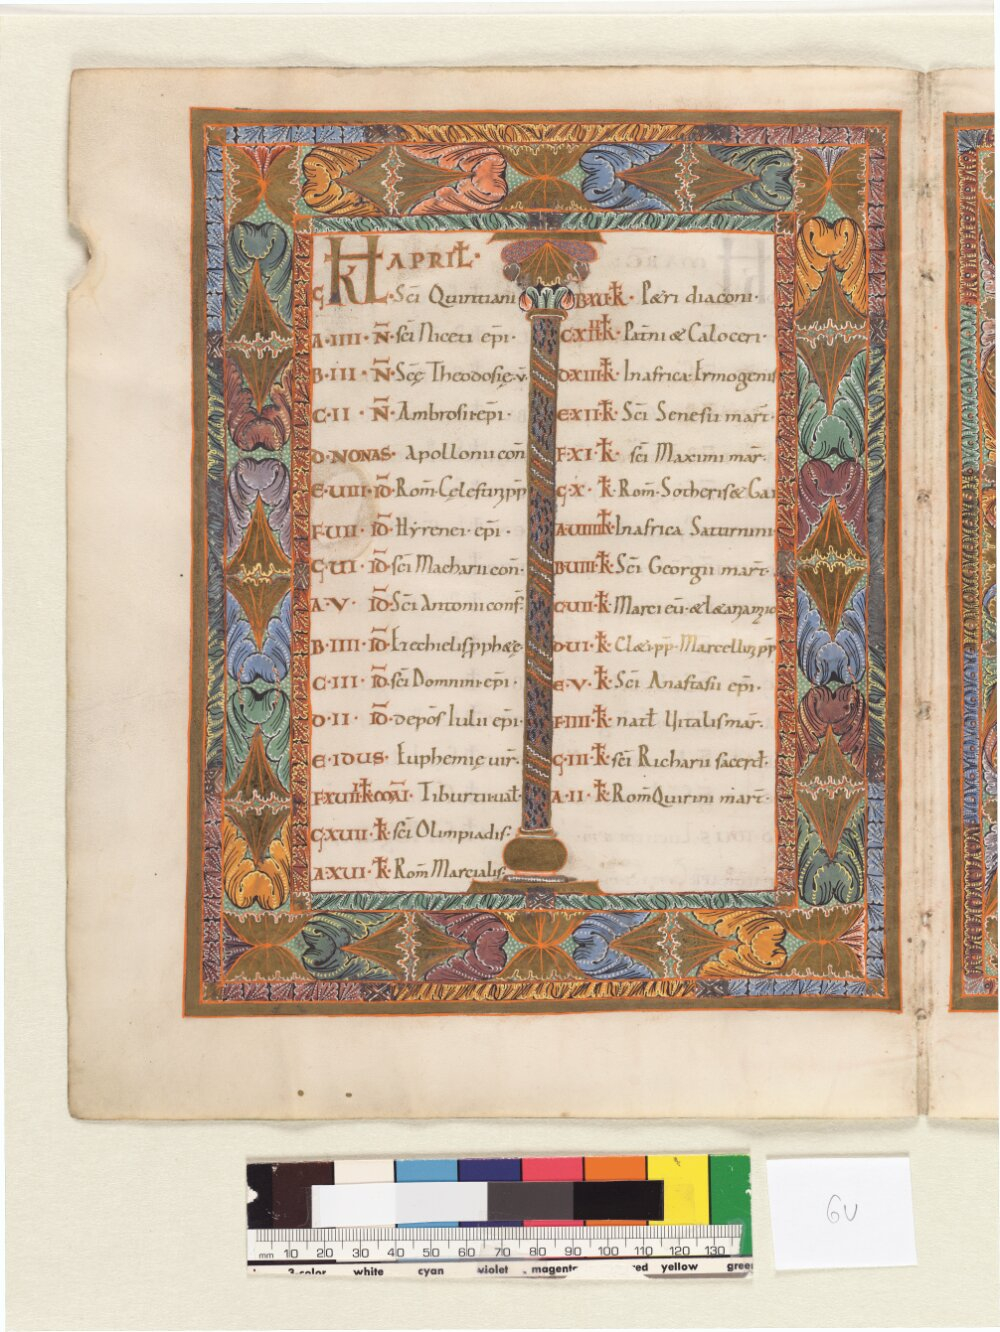 KL APRIL·
G · Sc̄i Quintiani
A · IIII · N̄ · sc̄i Niceti ep̄i ·
B · III · N̄ · Sc̄ę Theodosię · v̄ ·
C · II · N̄ · Ambrosii · ep̄i ·
D · NONAS · Apollonii con̄
E · VIII · ID · Rom̄ Celestini pp̄
F · VII · ID · Hyrenei · ep̄i ·
G · VI · ID · sc̄i Macharii con̄ ·
A · V · ID · Sc̄i Antonii conf̄ ·
B · IIII · ID · Ezechielis pphaę ·
C · III · ID · sc̄i Domnini · ep̄i ·
D · II · ID · depōs Iulii ep̄i ·
E · IDUS · Euphemię uir̄ ·
F · XVIII · k̄ · MAI · Tiburtii · ual̄ ·
G · XVII · k̄ · sc̄i Olimpiadis ·
A · XVI · k̄ · Rom̄ Marcialis ·
B · XV · k̄ · Petri diaconi ·
C · XIIII · k̄ · Pat̄ni & Caloceri ·
D · XIII · k̄ · In africa · Ermogenis
E · XII · k̄ · Sc̄i Senesii mart̄ ·
F · XI · k̄ · sc̄i Maximi mār ·
G · X · k̄ · Rom̄ · Sotheris & Gai
A · VIIII · k̄ · In africa Saturnini ·
B · VIII · k̄ · Sc̄i Georgii mart̄ ·
C · VII · k̄ · Marci eū · & Laetanię
D · VI · k̄ · Cleti · pp̄ · Marcellini pp̄
E · V · k̄ · Sc̄i Anastasii ep̄i ·
F · IIII · k̄ · nat̄l Vitalis mār ·
G · III · k̄ · sc̄i Richarii sacerd̄ ·
A · II · k̄ · Rom̄ Quirini mart̄ ·
mm 10 20 30 40 50 60 70 80 90 100 110 120 130
3-color white cyan violet magenta red yellow green
6v